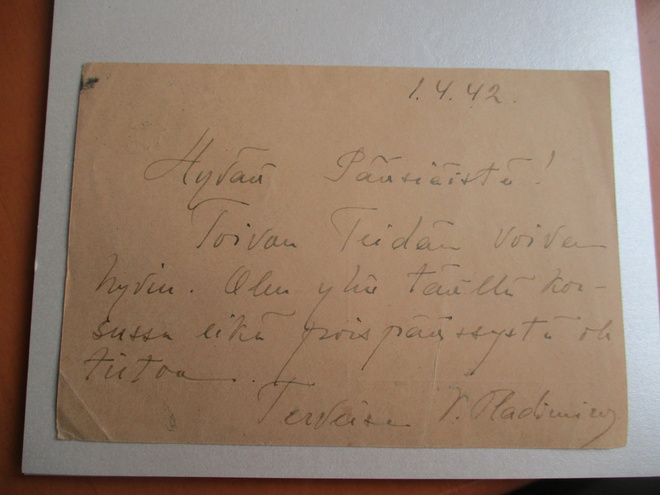 1.4.42.
Hyvää Pääsiäistä!
Toivon Teidän voivan
hyvin. Olen yhä täällä kor-
sussa eikä poispääsystä ole
tietoa.
Terveisin V. Vladimirov